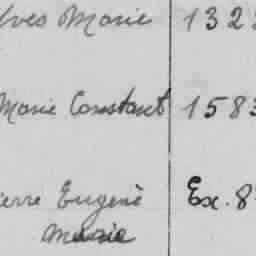 Yves Marie 132
Marie Constant 1583
ierre Eugene Ex. 8
Marie